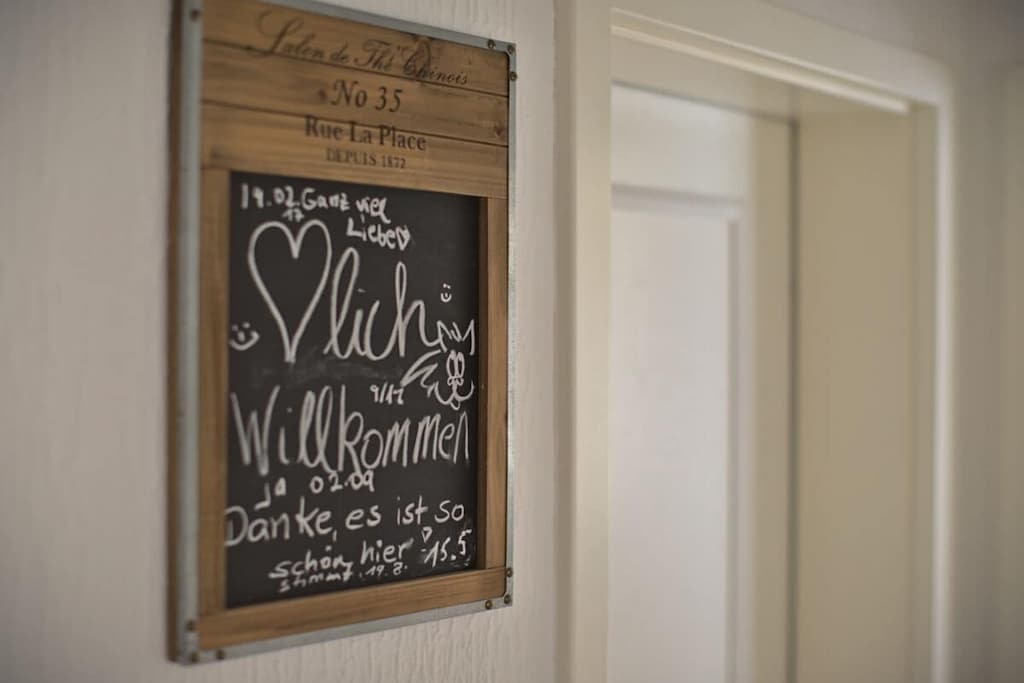 Salon de Thé Chinois
No 35
Rue La Place
DEPUIS 1872
19.02. Ganz viel
17
Liebe♡
♡lich
9/17
Willkommen
ja 02.09
Danke, es ist so
schön hier 15.5
19.8.